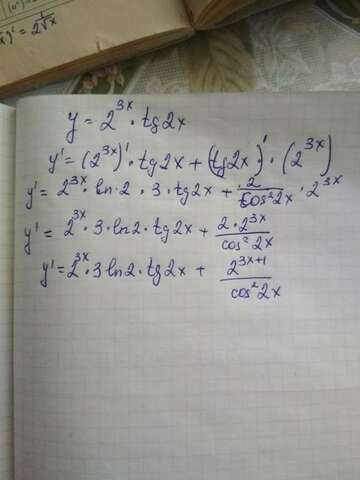 )' = 1/2√x
y = 2^{3x} · tg2x
y' = (2^{3x})' · tg2x + (tg2x)' · (2^{3x})
y' = 2^{3x} · ln·2 · 3 · tg2x + 2/cos²2x · 2^{3x}
y' = 2^{3x} · 3 · ln2 · tg2x + 2·2^{3x}/cos²2x
y' = 2^{3x} · 3 ln2 · tg2x + 2^{3x+1}/cos²2x